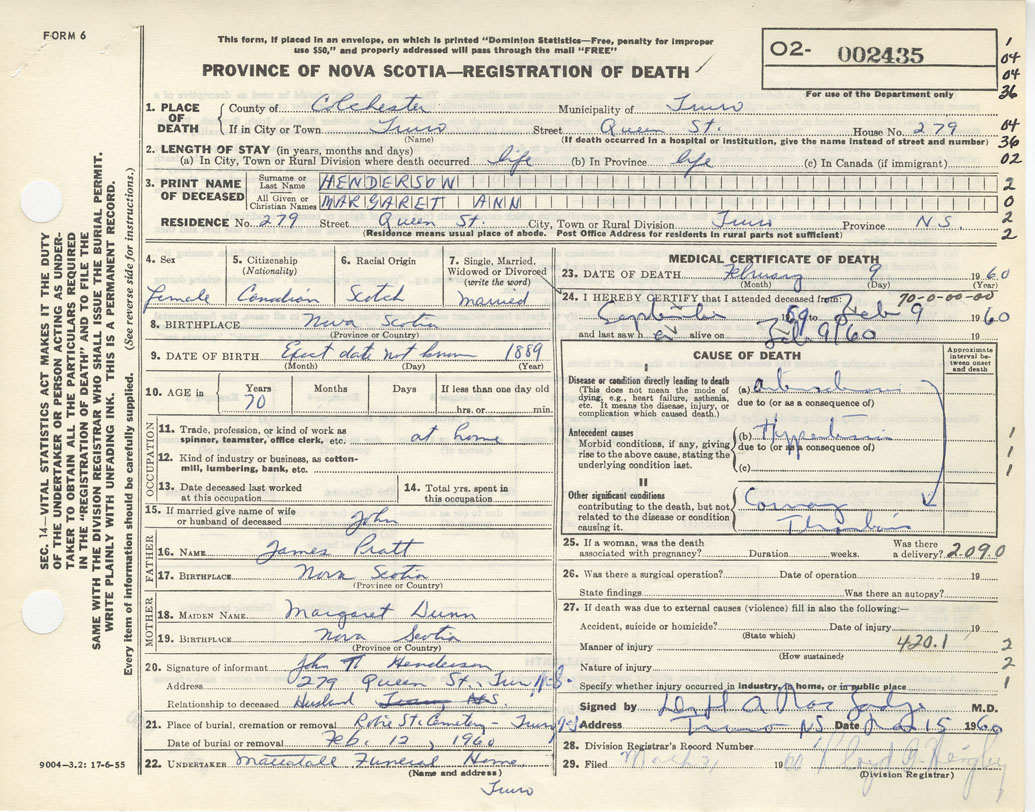 FORM 6
This form, if placed in an envelope, on which is printed “Dominion Statistics—Free, penalty for improper
use $50,” and properly addressed will pass through the mail “FREE”
PROVINCE OF NOVA SCOTIA—REGISTRATION OF DEATH
O2- 002435
For use of the Department only
1
04
04
36
04
36
02
2
0
2
2
1. PLACE OF DEATH
County of Colchester Municipality of Truro
If in City or Town Truro Street Queen St. House No. 279
(Name) (If death occurred in a hospital or institution, give the name instead of street and number)
2. LENGTH OF STAY (in years, months and days)
(a) In City, Town or Rural Division where death occurred life (b) In Province life (c) In Canada (if immigrant)
3. PRINT NAME OF DECEASED
Surname or Last Name HENDERSON
All Given or Christian Names MARGARET ANN
RESIDENCE No. 279 Street Queen St. City, Town or Rural Division Truro Province N.S.
(Residence means usual place of abode. Post Office Address for residents in rural parts not sufficient)
SEC. 14—VITAL STATISTICS ACT MAKES IT THE DUTY
OF THE UNDERTAKER OR PERSON ACTING AS UNDER-
TAKER TO OBTAIN ALL THE PARTICULARS REQUIRED
IN THE “REGISTRATION OF DEATH” AND TO FILE THE
SAME WITH THE DIVISION REGISTRAR WHO SHALL ISSUE THE BURIAL PERMIT.
WRITE PLAINLY WITH UNFADING INK. THIS IS A PERMANENT RECORD.
Every item of information should be carefully supplied. (See reverse side for instructions.)
4. Sex
female
5. Citizenship
(Nationality)
Canadian
6. Racial Origin
Scotch
7. Single, Married,
Widowed or Divorced
(write the word)
Married
8. BIRTHPLACE Nova Scotia
(Province or Country)
9. DATE OF BIRTH Exact date not known 1889
(Month) (Day) (Year)
10. AGE in
Years
70
Months
Days
If less than one day old
hrs. or min.
OCCUPATION
11. Trade, profession, or kind of work as
spinner, teamster, office clerk, etc. at home
12. Kind of industry or business, as cotton-
mill, lumbering, bank, etc.
13. Date deceased last worked
at this occupation
14. Total yrs. spent in
this occupation
15. If married give name of wife
or husband of deceased John
FATHER
16. NAME James Pratt
17. BIRTHPLACE Nova Scotia
(Province or Country)
MOTHER
18. MAIDEN NAME Margaret Dunn
19. BIRTHPLACE Nova Scotia
(Province or Country)
20. Signature of informant John Henderson
Address 279 Queen St. Truro N.S.
Relationship to deceased Husband
21. Place of burial, cremation or removal Robie St. Cemetery - Truro N.S.
Date of burial or removal Feb. 12, 1960
22. UNDERTAKER Mattatall Funeral Home
(Name and address)
Truro
9004—3.2: 17-6-55
MEDICAL CERTIFICATE OF DEATH
23. DATE OF DEATH February 9 1960
(Month) (Day)
70-0-00-00
24. I HEREBY CERTIFY that I attended deceased from:
September 1959 to Feb 9 1960
and last saw h er alive on Feb 9/60 19
Approximate
interval be-
tween onset
and death
CAUSE OF DEATH
I
Disease or condition directly leading to death (a)
(This does not mean the mode of
dying, e.g., heart failure, asthenia,
etc. It means the disease, injury, or
complication which caused death.)
due to (or as a consequence of)
Antecedent causes
Morbid conditions, if any, giving
rise to the above cause, stating the
underlying condition last.
(b) Hypertension
due to (or as a consequence of)
(c)
1
1
1
II
Other significant conditions
contributing to the death, but not
related to the disease or condition
causing it.
Coronary
Thrombosis
25. If a woman, was the death
associated with pregnancy? Duration weeks. Was there
a delivery? 2090
26. Was there a surgical operation? Date of operation 19
State findings Was there an autopsy?
27. If death was due to external causes (violence) fill in also the following:—
Accident, suicide or homicide? Date of injury 19
(State which)
Manner of injury 420.1
(How sustained)
Nature of injury
2
2
1
Specify whether injury occurred in industry, in home, or in public place
Signed by M.D.
Address Truro NS Date 15 1960
28. Division Registrar's Record Number
29. Filed 1960
(Division Registrar)